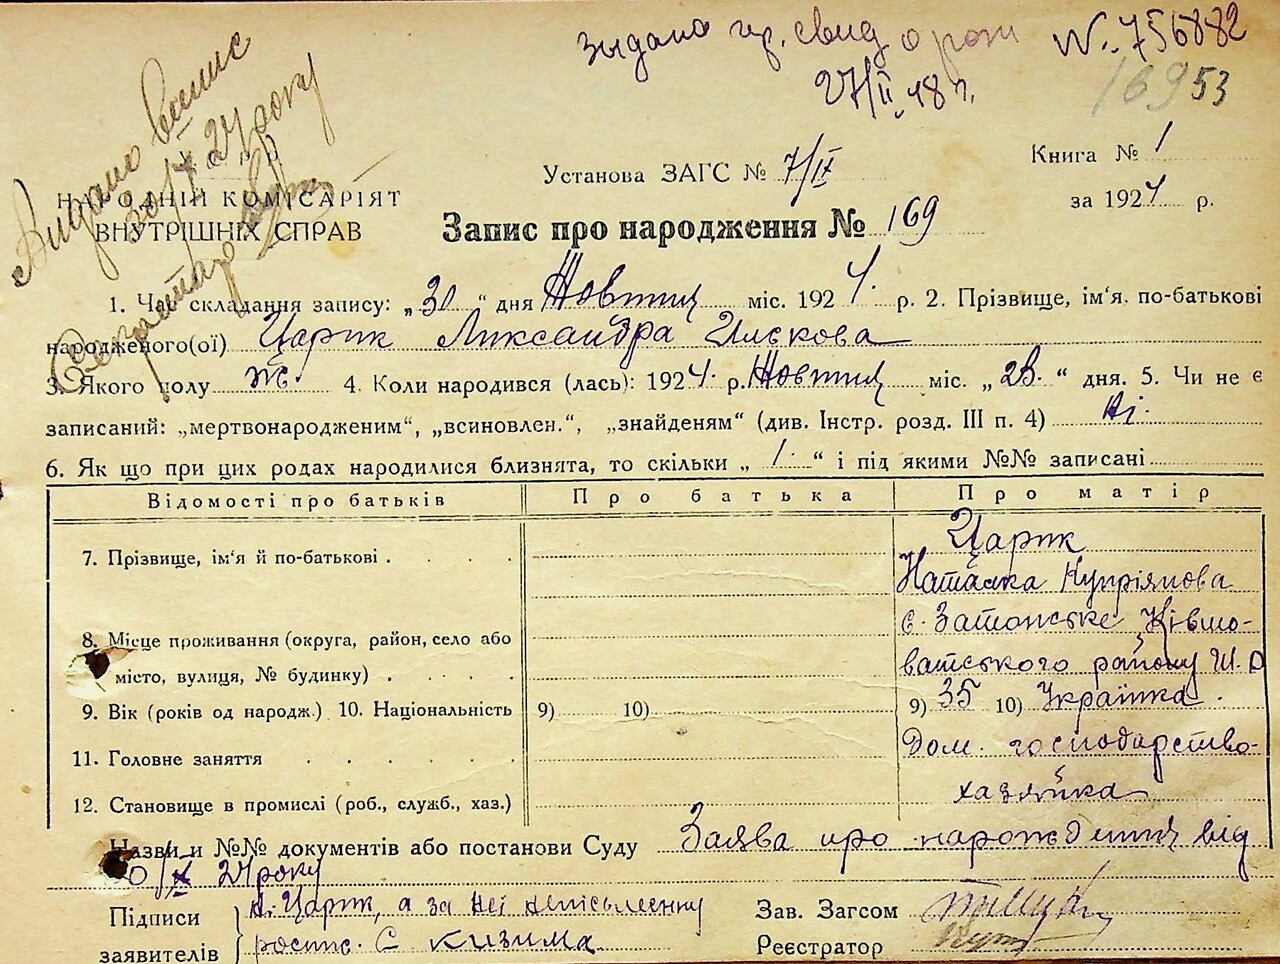 Видано гр. свид о рож № 756882
27/II 48 г.
16953
Видано випис
30/X 24 року
У. С. Р. Р.
НАРОДНІЙ КОМІСАРІЯТ
ВНУТРІШНІХ СПРАВ
Установа ЗАГС № 7/IX
Книга № 1
за 1924 р.
Запис про народження № 169
1. Час складання запису: „30“ дня Жовтня міс. 1924. р. 2. Прізвище, ім'я, по-батькові
народженого(ої) Царик Лиександра Илькова
3. Якого полу ж. 4. Коли народився (лась): 1924. р. Жовтня міс. „28.“ дня. 5. Чи не є
записаний: „мертвонародженим“, „всиновлен.“, „знайденям“ (див. Інстр. розд. III п. 4) Ні.
6. Як що при цих родах народилися близнята, то скільки „1.“ і під якими №№ записані
Відомості про батьків Про батька Про матір
7. Прізвище, ім'я й по-батькові Царик
Наталка Купріянова
8. Місце проживання (округа, район, село або с. Затонське, Ківшо-
місто, вулиця, № будинку) ватського району Ш. О
9. Вік (років од народж.) 10. Національність 9) 10) 9) 35 10) Українка.
11. Головне заняття Дом. господарство-
12. Становище в промислі (роб., служб., хаз.) хазяйка
Назви и №№ документів або постанови Суду Заява про нарождення від
30/X 24 року
Підписи Н. Царик, а за неї неписьменну Зав. Загсом
заявителів роспис. С Кизима Реєстратор